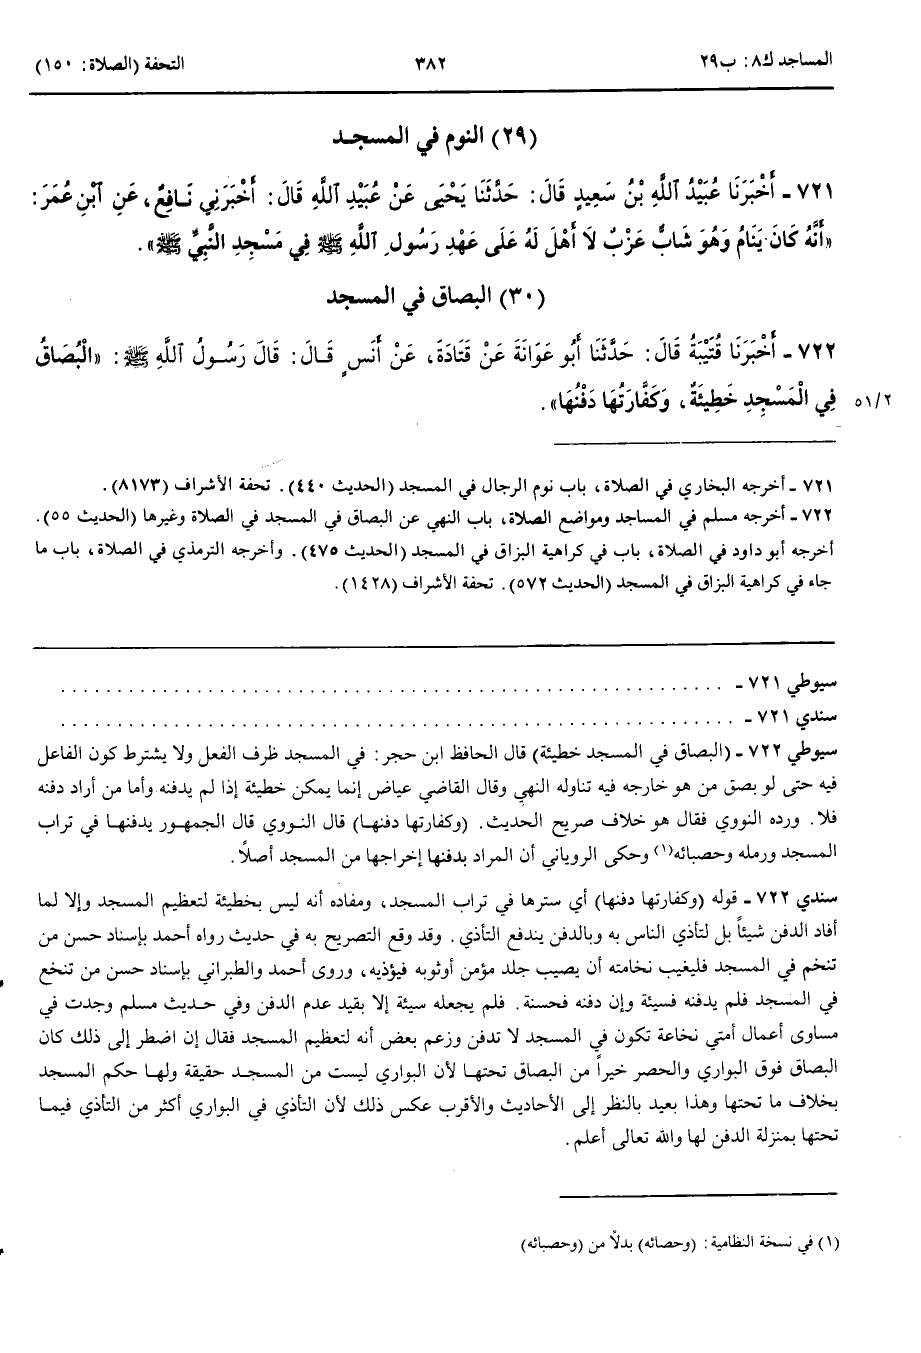 المساجد ك٨: ب٢٩ ٣٨٢ التحفة (الصلاة: ١٥٠)
(٢٩) النوم في المسجد
٧٢١ - أَخْبَرَنَا عُبَيْدُ ٱللَّهِ بْنُ سَعِيدٍ قَالَ: حَدَّثَنَا يَحْيَى عَنْ عُبَيْدِ ٱللَّهِ قَالَ: أَخْبَرَنِي نَافِعٌ، عَنِ ٱبْنِ عُمَرَ:
«أَنَّهُ كَانَ يَنَامُ وَهُوَ شَابٌّ عَزْبٌ لَا أَهْلَ لَهُ عَلَى عَهْدِ رَسُولِ ٱللَّهِ ﷺ فِي مَسْجِدِ النَّبِيِّ ﷺ».
(٣٠) البصاق في المسجد
٧٢٢ - أَخْبَرَنَا قُتَيْبَةُ قَالَ: حَدَّثَنَا أَبُو عَوَانَةَ عَنْ قَتَادَةَ، عَنْ أَنَسٍ قَالَ: قَالَ رَسُولُ ٱللَّهِ ﷺ: «الْبُصَاقُ
٥١/٢ فِي الْمَسْجِدِ خَطِيئَةٌ، وَكَفَّارَتُهَا دَفْنُهَا».
٧٢١ - أخرجه البخاري في الصلاة، باب نوم الرجال في المسجد (الحديث ٤٤٠). تحفة الأشراف (٨١٧٣).
٧٢٢ - أخرجه مسلم في المساجد ومواضع الصلاة، باب النهي عن البصاق في المسجد في الصلاة وغيرها (الحديث ٥٥).
أخرجه أبو داود في الصلاة، باب في كراهية البزاق في المسجد (الحديث ٤٧٥). وأخرجه الترمذي في الصلاة، باب ما
جاء في كراهية البزاق في المسجد (الحديث ٥٧٢). تحفة الأشراف (١٤٢٨).
سيوطي ٧٢١ - . . . . . . . . . . . . . . . . . . . . . . . . . . . . . .
سندي ٧٢١ - . . . . . . . . . . . . . . . . . . . . . . . . . . . . . .
سيوطي ٧٢٢ - (البصاق في المسجد خطيئة) قال الحافظ ابن حجر: في المسجد ظرف الفعل ولا يشترط كون الفاعل
فيه حتى لو بصق من هو خارجه فيه تناوله النهي وقال القاضي عياض إنما يمكن خطيئة إذا لم يدفنه وأما من أراد دفنه
فلا. ورده النووي فقال هو خلاف صريح الحديث. (وكفارتها دفنها) قال النووي قال الجمهور يدفنها في تراب
المسجد ورمله وحصبائه(١) وحكى الروياني أن المراد بدفنها إخراجها من المسجد أصلاً.
سندي ٧٢٢ - قوله (وكفارتها دفنها) أي سترها في تراب المسجد، ومفاده أنه ليس بخطيئة لتعظيم المسجد وإلا لما
أفاد الدفن شيئاً بل لتأذي الناس به وبالدفن يندفع التأذي. وقد وقع التصريح به في حديث رواه أحمد بإسناد حسن من
تنخم في المسجد فليغيب نخامته أن يصيب جلد مؤمن أوثوبه فيؤذيه، وروى أحمد والطبراني بإسناد حسن من تنخع
في المسجد فلم يدفنه فسيئة وإن دفنه فحسنة. فلم يجعله سيئة إلا بقيد عدم الدفن وفي حديث مسلم وجدت في
مساوى أعمال أمتي نخاعة تكون في المسجد لا تدفن وزعم بعض أنه لتعظيم المسجد فقال إن اضطر إلى ذلك كان
البصاق فوق البواري والحصر خيراً من البصاق تحتها لأن البواري ليست من المسجد حقيقة ولها حكم المسجد
بخلاف ما تحتها وهذا بعيد بالنظر إلى الأحاديث والأقرب عكس ذلك لأن التأذي في البواري أكثر من التأذي فيما
تحتها بمنزلة الدفن لها والله تعالى أعلم.
(١) في نسخة النظامية: (وحصائه) بدلاً من (وحصبائه)